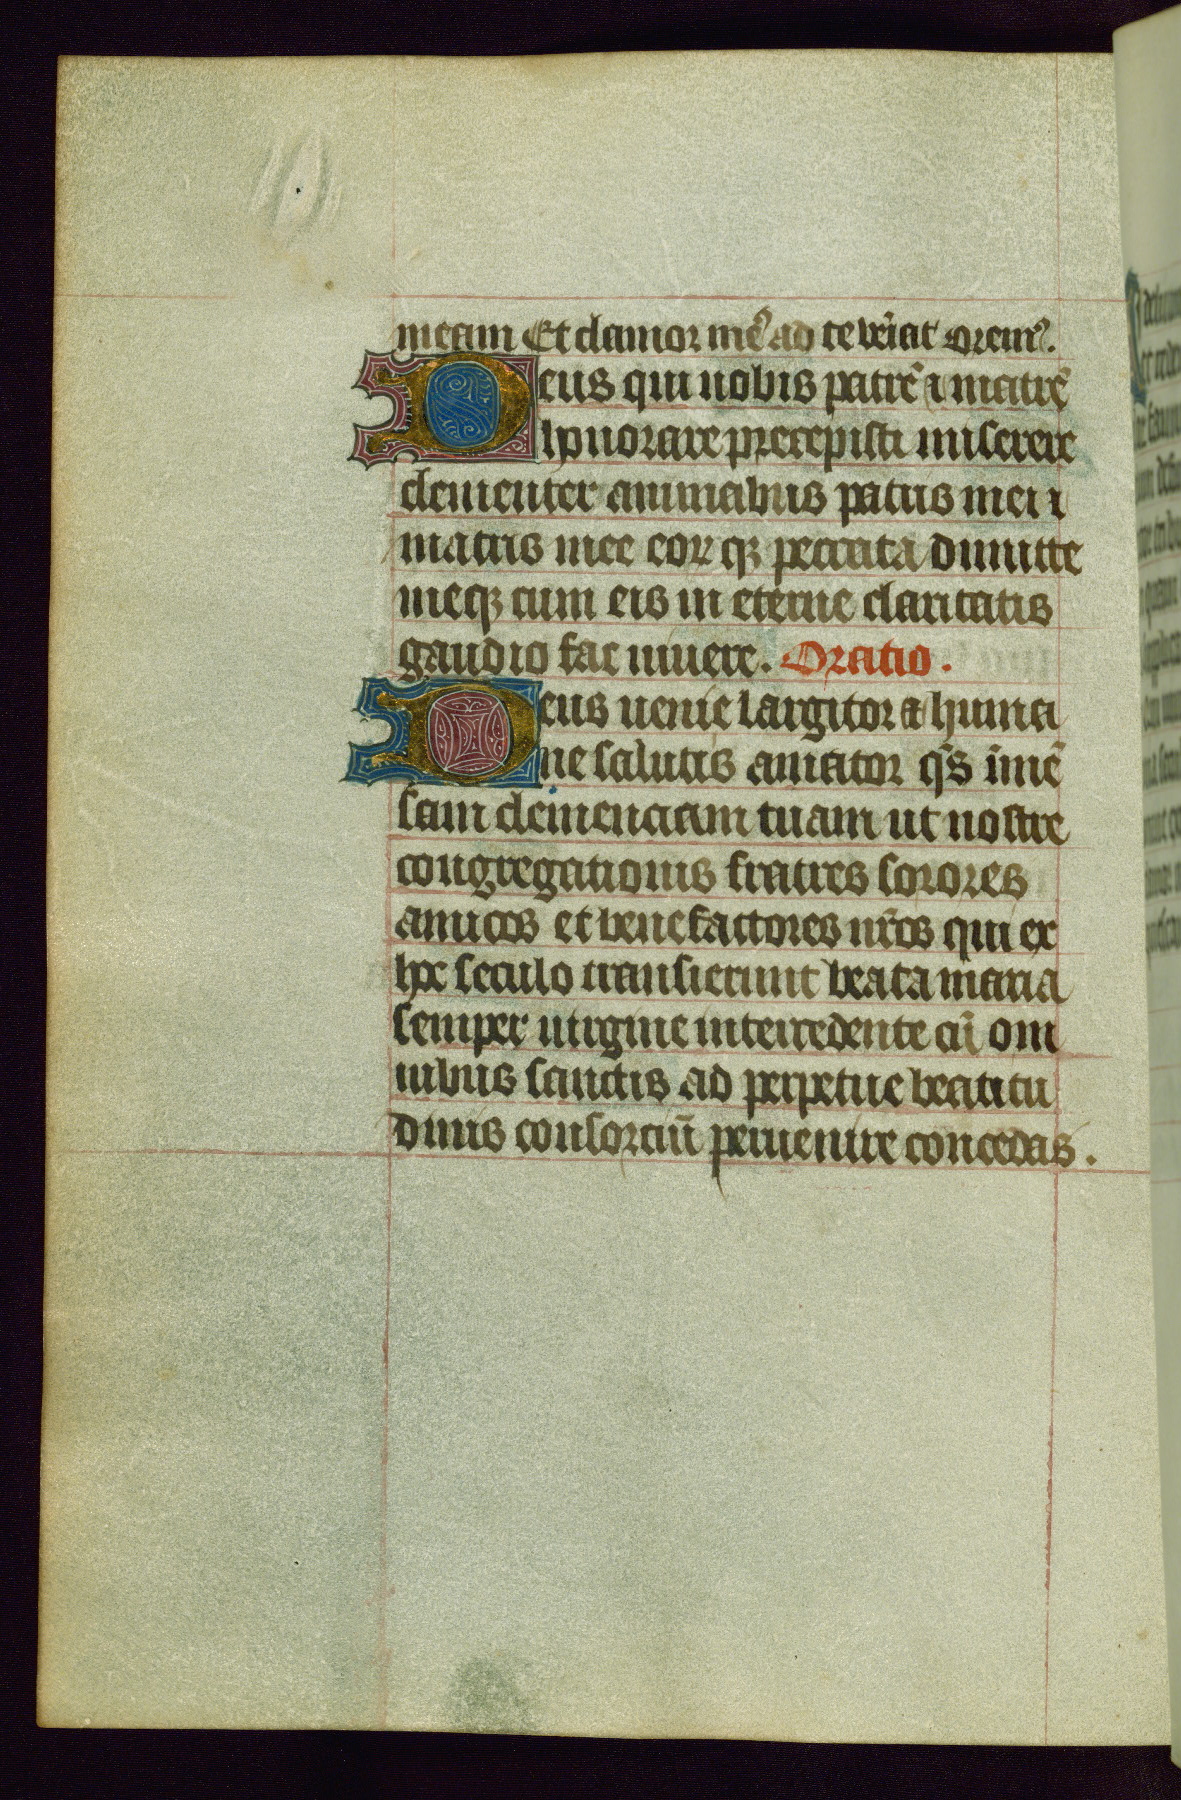 meam Et clamor me⁹ ad te veniat Orem⁹.
Deus qui nobis patrē ⁊ matrē
honorare precepisti miserere
clementer animabus patris mei ⁊
matris mee eorꝗꝫ peccata dimitte
meqꝫ cum eis in eterne claritatis
gaudio fac uiuere. Oratio.
Deus uenie largitor et huma
ne salutis amator qs̄ īmē
sam clemenciam tuam ut nostre
congregationis fratres sorores
amicos et benefactores nr̄os qui ex
hoc seculo transierunt beata maria
semper uirgine intercedente cū om
nibus sanctis ad perpetue beatitu
dinis consorciū peruenire concedas.